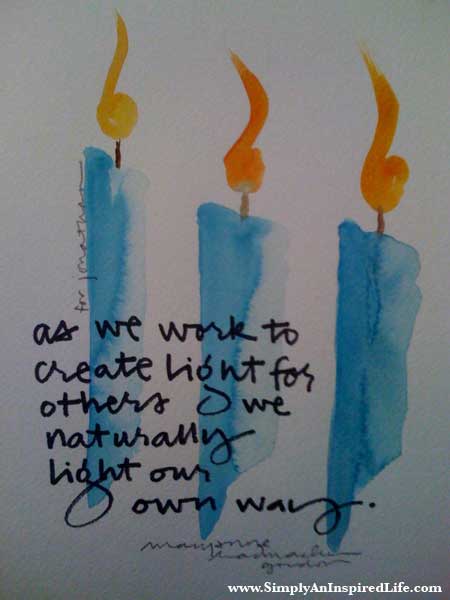 for jonathan
as we work to
create light for
others we
naturally
light our
own way.
maryanne
radmacher
gordon
www.SimplyAnInspiredLife.com